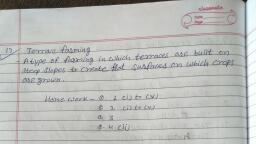 classmate
Date
Page
17. Terrace farming
A type of farming in which terraces are built on
steep slopes to create flat surfaces on which crops
are grown.
Home work - Q. 1 (i) to (x)
Q. 2 (i) to (x)
Q. 3
Q. 4 (i)